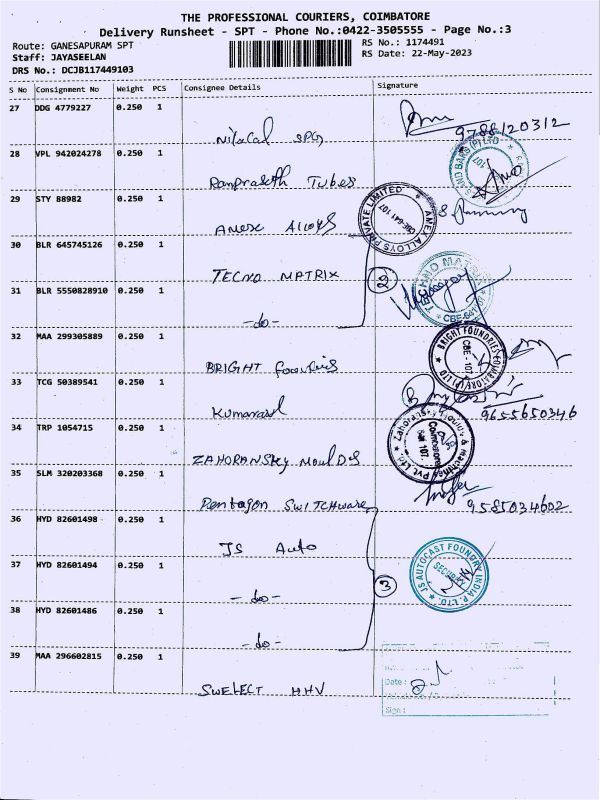 THE PROFESSIONAL COURIERS, COIMBATORE
Delivery Runsheet - SPT - Phone No.:0422-3505555 - Page No.:3
Route: GANESAPURAM SPT RS No.: 1174491
Staff: JAYASEELAN RS Date: 22-May-2023
DRS No.: DCJB117449103
S No Consignment No Weight PCS Consignee Details Signature
27 DDG 4779227 0.250 1
SPG 9788120312
28 VPL 942024278 0.250 1
Tubes
29 STY 88982 0.250 1
Amex Alloys AMEX ALLOYS PRIVATE LIMITED CBE-641 107
30 BLR 645745126 0.250 1
TECNO MATRIX
31 BLR 5550828910 0.250 1
-do- CBE-641
32 MAA 299305889 0.250 1
BRIGHT BRIGHT FOUNDRIES CBE - 107
33 TCG 50389541 0.250 1
9655650346
34 TRP 1054715 0.250 1
ZAHORANSky Moulds Zahoransky Moulds & Machines Pvt. Ltd.
35 SLM 320203368 0.250 1
Pentagon SWITCHware 9585034602
36 HYD 82601498 0.250 1
JS Auto JS AUTOCAST FOUNDRY INDIA P. LTD. SECURITY
37 HYD 82601494 0.250 1
-do- 3
38 HYD 82601486 0.250 1
-do-
39 MAA 296602815 0.250 1
Date :
SWELECT HHV
Sign :